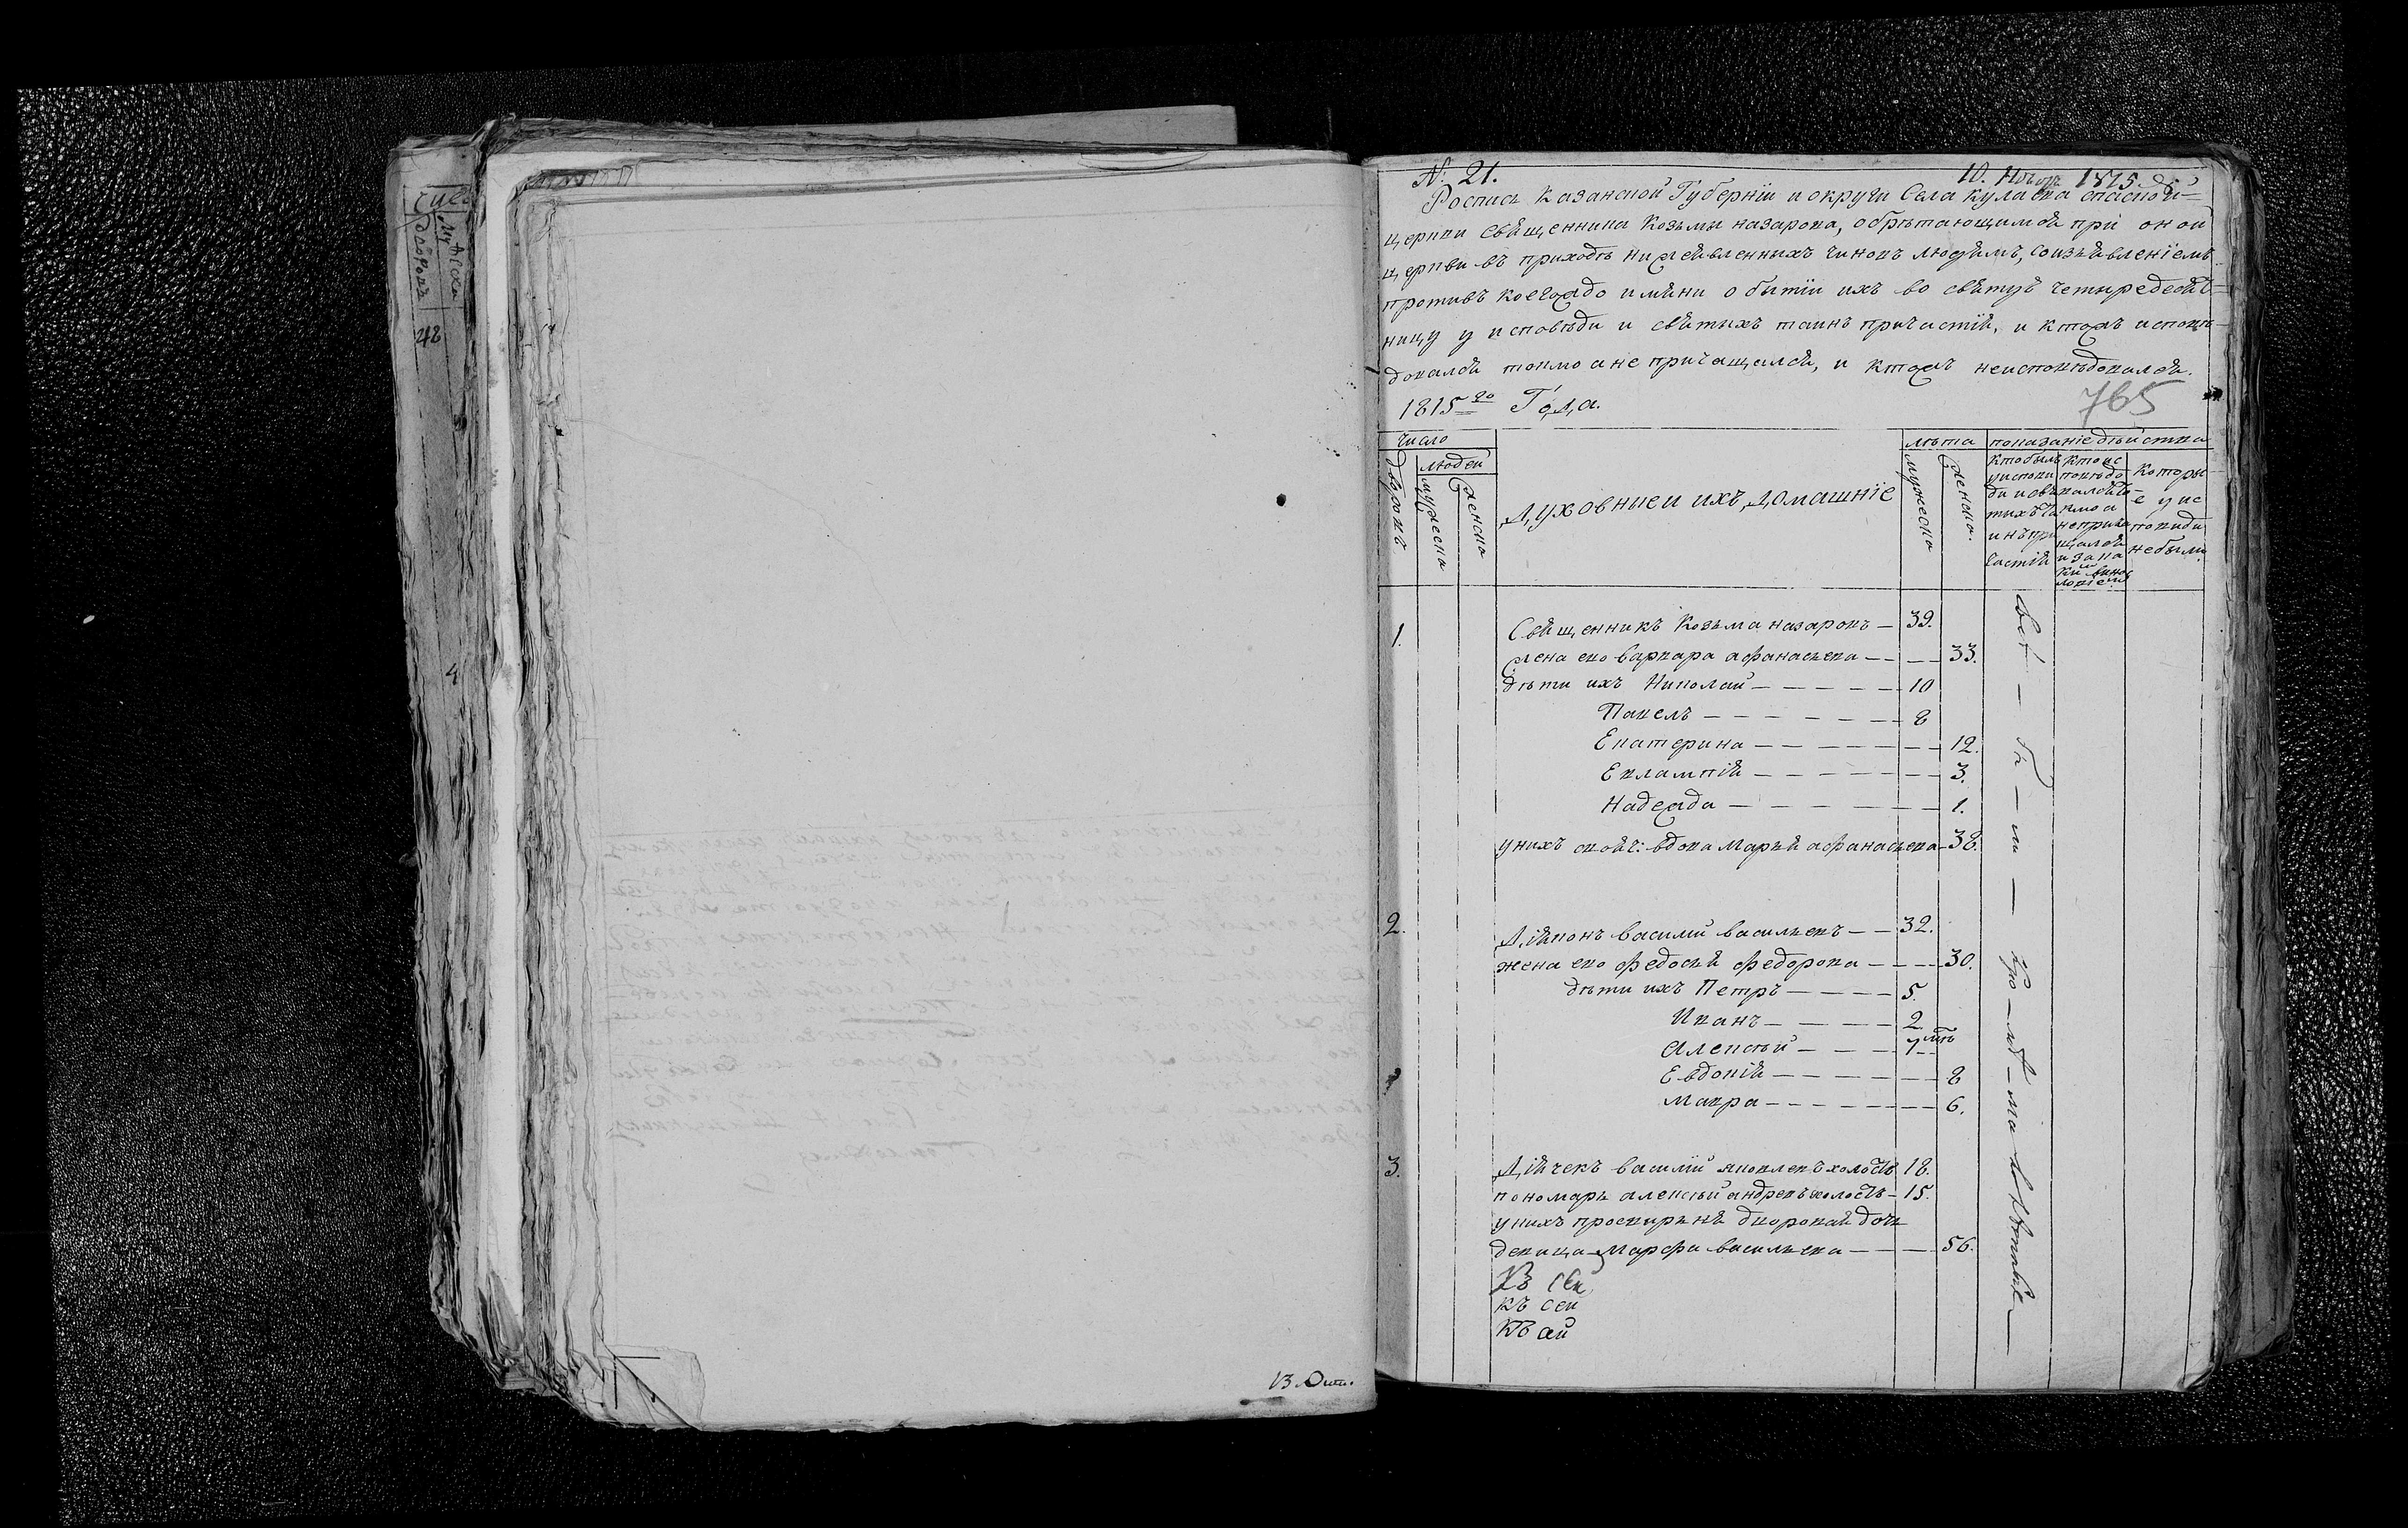 Число
дворовъ
муж
42
4
13. Лит.
№ 21.
10. 1815
Роспись Казанской Губерніи и округи Села кулаева спаской
церкви Священника Козьмы назарова, обрѣтающимся при оной
церкви въ приходѣ нижеявленныхъ чиновъ людямъ, соизъявленіемъ
противъ коегождо имяни о бытіи ихъ во святую четыредесят
ницу у исповѣди и святыхъ таинъ причастія, и ктожъ исповѣ
довался токмо а не причащался, и ктожъ неисповѣдовался.
1815го Года.
765
Число
лѣта
показаніе дѣйства
дворовъ
людей
мужеска
женска
Духовные и ихъ домашніе
мужеска
женска.
кто былъ
у испови
ди и свя
тыхъ та
инъ при
частія
кто ис
повѣдо
вался то
кмо а
неприча
щался
и за ка
кимъ винос
ловіемъ
которы
е у ис
повиди
небыли
1. Священникъ Козьма назаровъ — 39.
жена ево варвара афанасьева — 33.
дѣти ихъ Николай — 10
Павелъ — 8
Екатерина — 12.
Евлампія — 3.
Надежда — 1.
у нихъ своя: вдова Марья афанасьева — 38.
2. Діяконъ василий васильевъ — 32.
жена ево федосья федорова — 30.
дѣти ихъ Петръ — 5.
Иванъ — 2
Алексѣй — 7 мѣ
Евдокія — 8
Макра — 6.
3. Діячекъ василій яковлевъ холостъ 18.
пономарь алексѣй андревъ холостъ — 15.
у нихъ просвирьня дворовая дочь
девица Марфа васильева — 56.
Къ сей
къ сей
Къ ай